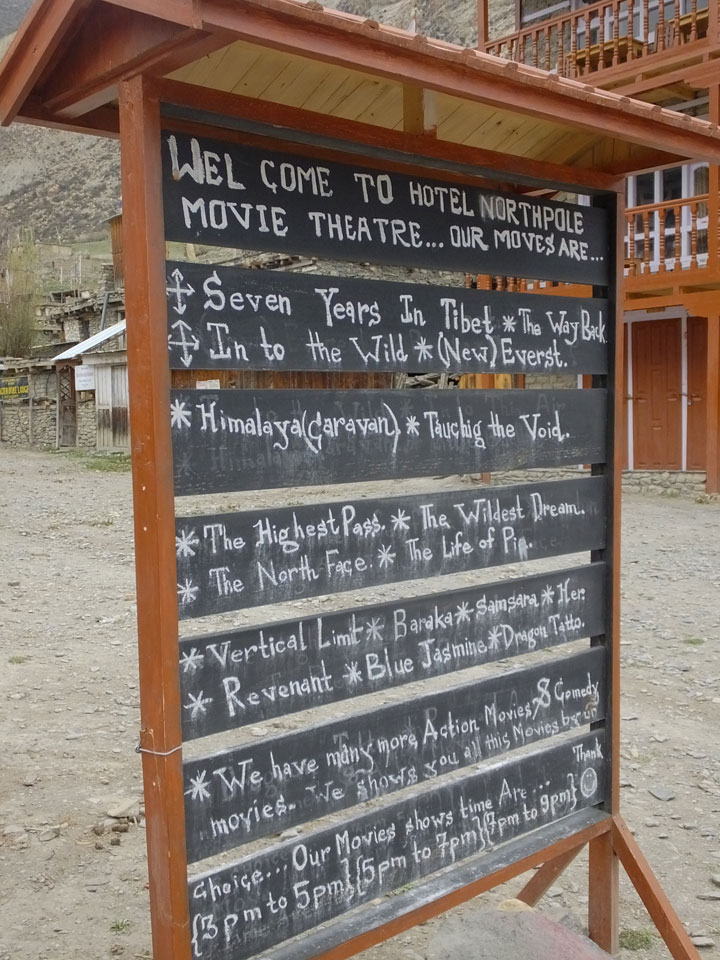 WEL COME TO HOTEL NORTHPOLE
MOVIE THEATRE... OUR MOVES ARE...
Seven Years In Tibet * The Way Back
In to the Wild * (New) Everst.
* Himalaya (Caravan) * Tauchig the Void.
* The Highest Pass. * The Wildest Dream.
* The North Face. * The Life of Pie.
* Vertical Limit * Baraka * Samsara * Her.
* Revenant * Blue Jasmine * Dragon Tatto.
* We have many more Action Movies & Comedy
movies. We shows you all this Movies by ur
Choice... Our Movies shows time Are... Thank
{3pm to 5pm} {5pm to 7pm} {7pm to 9pm}